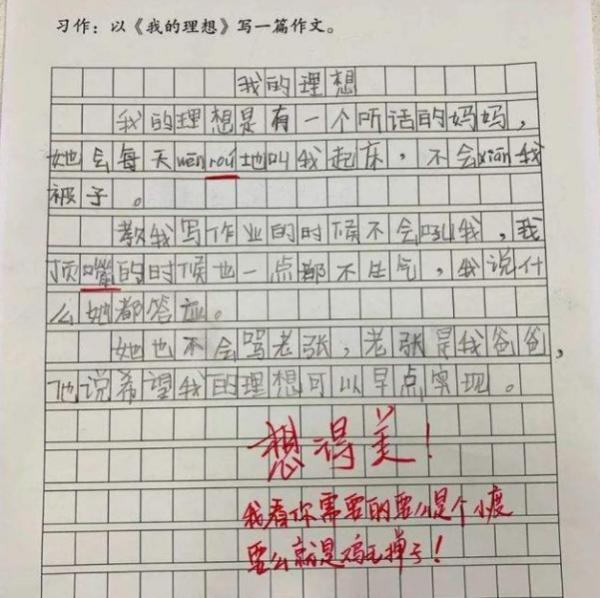 习作:以《我的理想》写一篇作文。
我的理想
我的理想是有一个听话的妈妈,
她会每天wēn róu地叫我起床,不会xiān我
被子。
教我写作业的时候不会吼我,我
顶嘴的时候也一点都不生气,我说什
么她都答应。
她也不会骂老张,老张是我爸爸,
他说希望我的理想可以早点实现。
想得美!
我看你需要的要么是个小
要么就是鸡毛掸子!